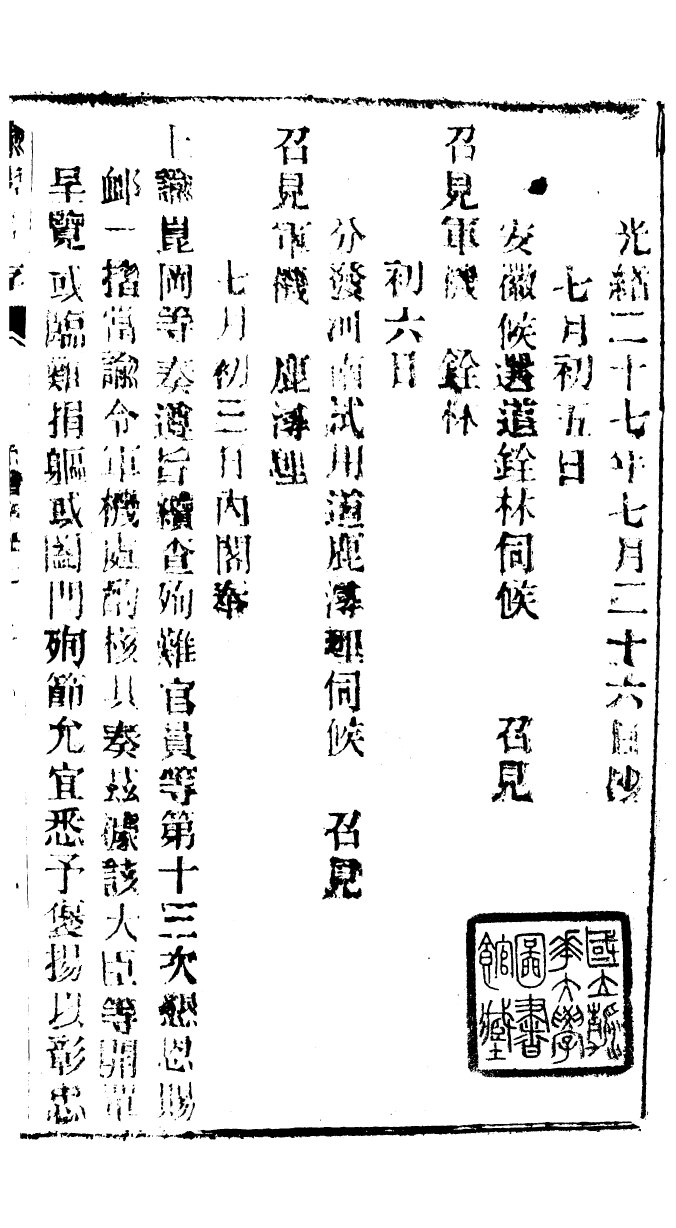 光緒二十七年七月二十六日鈔
七月初五日
安徽候選道銓林伺候　召見
召見軍機　銓林
初六日
分發河南試用道鹿瀛理伺候　召見
召見軍機　鹿瀛理
七月初三日內閣奉
上諭崑岡等奏遵旨續查殉難官員等第十三次懇恩賜
卹一摺當諭令軍機處酌核具奏茲據該大臣等開單
呈覽或臨難捐軀或闔門殉節允宜悉予褒揚以彰忠
國立清華大學圖書館藏